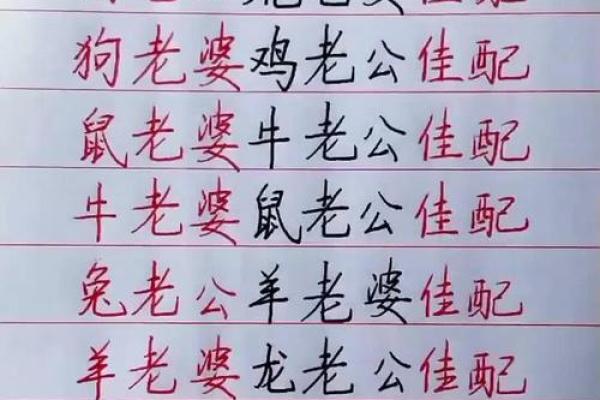 老婆佳配
狗老婆鸡老公佳配
鼠老婆牛老公佳配
牛老婆鼠老公佳配
兔老公羊老婆佳配
羊老婆龙老公佳配